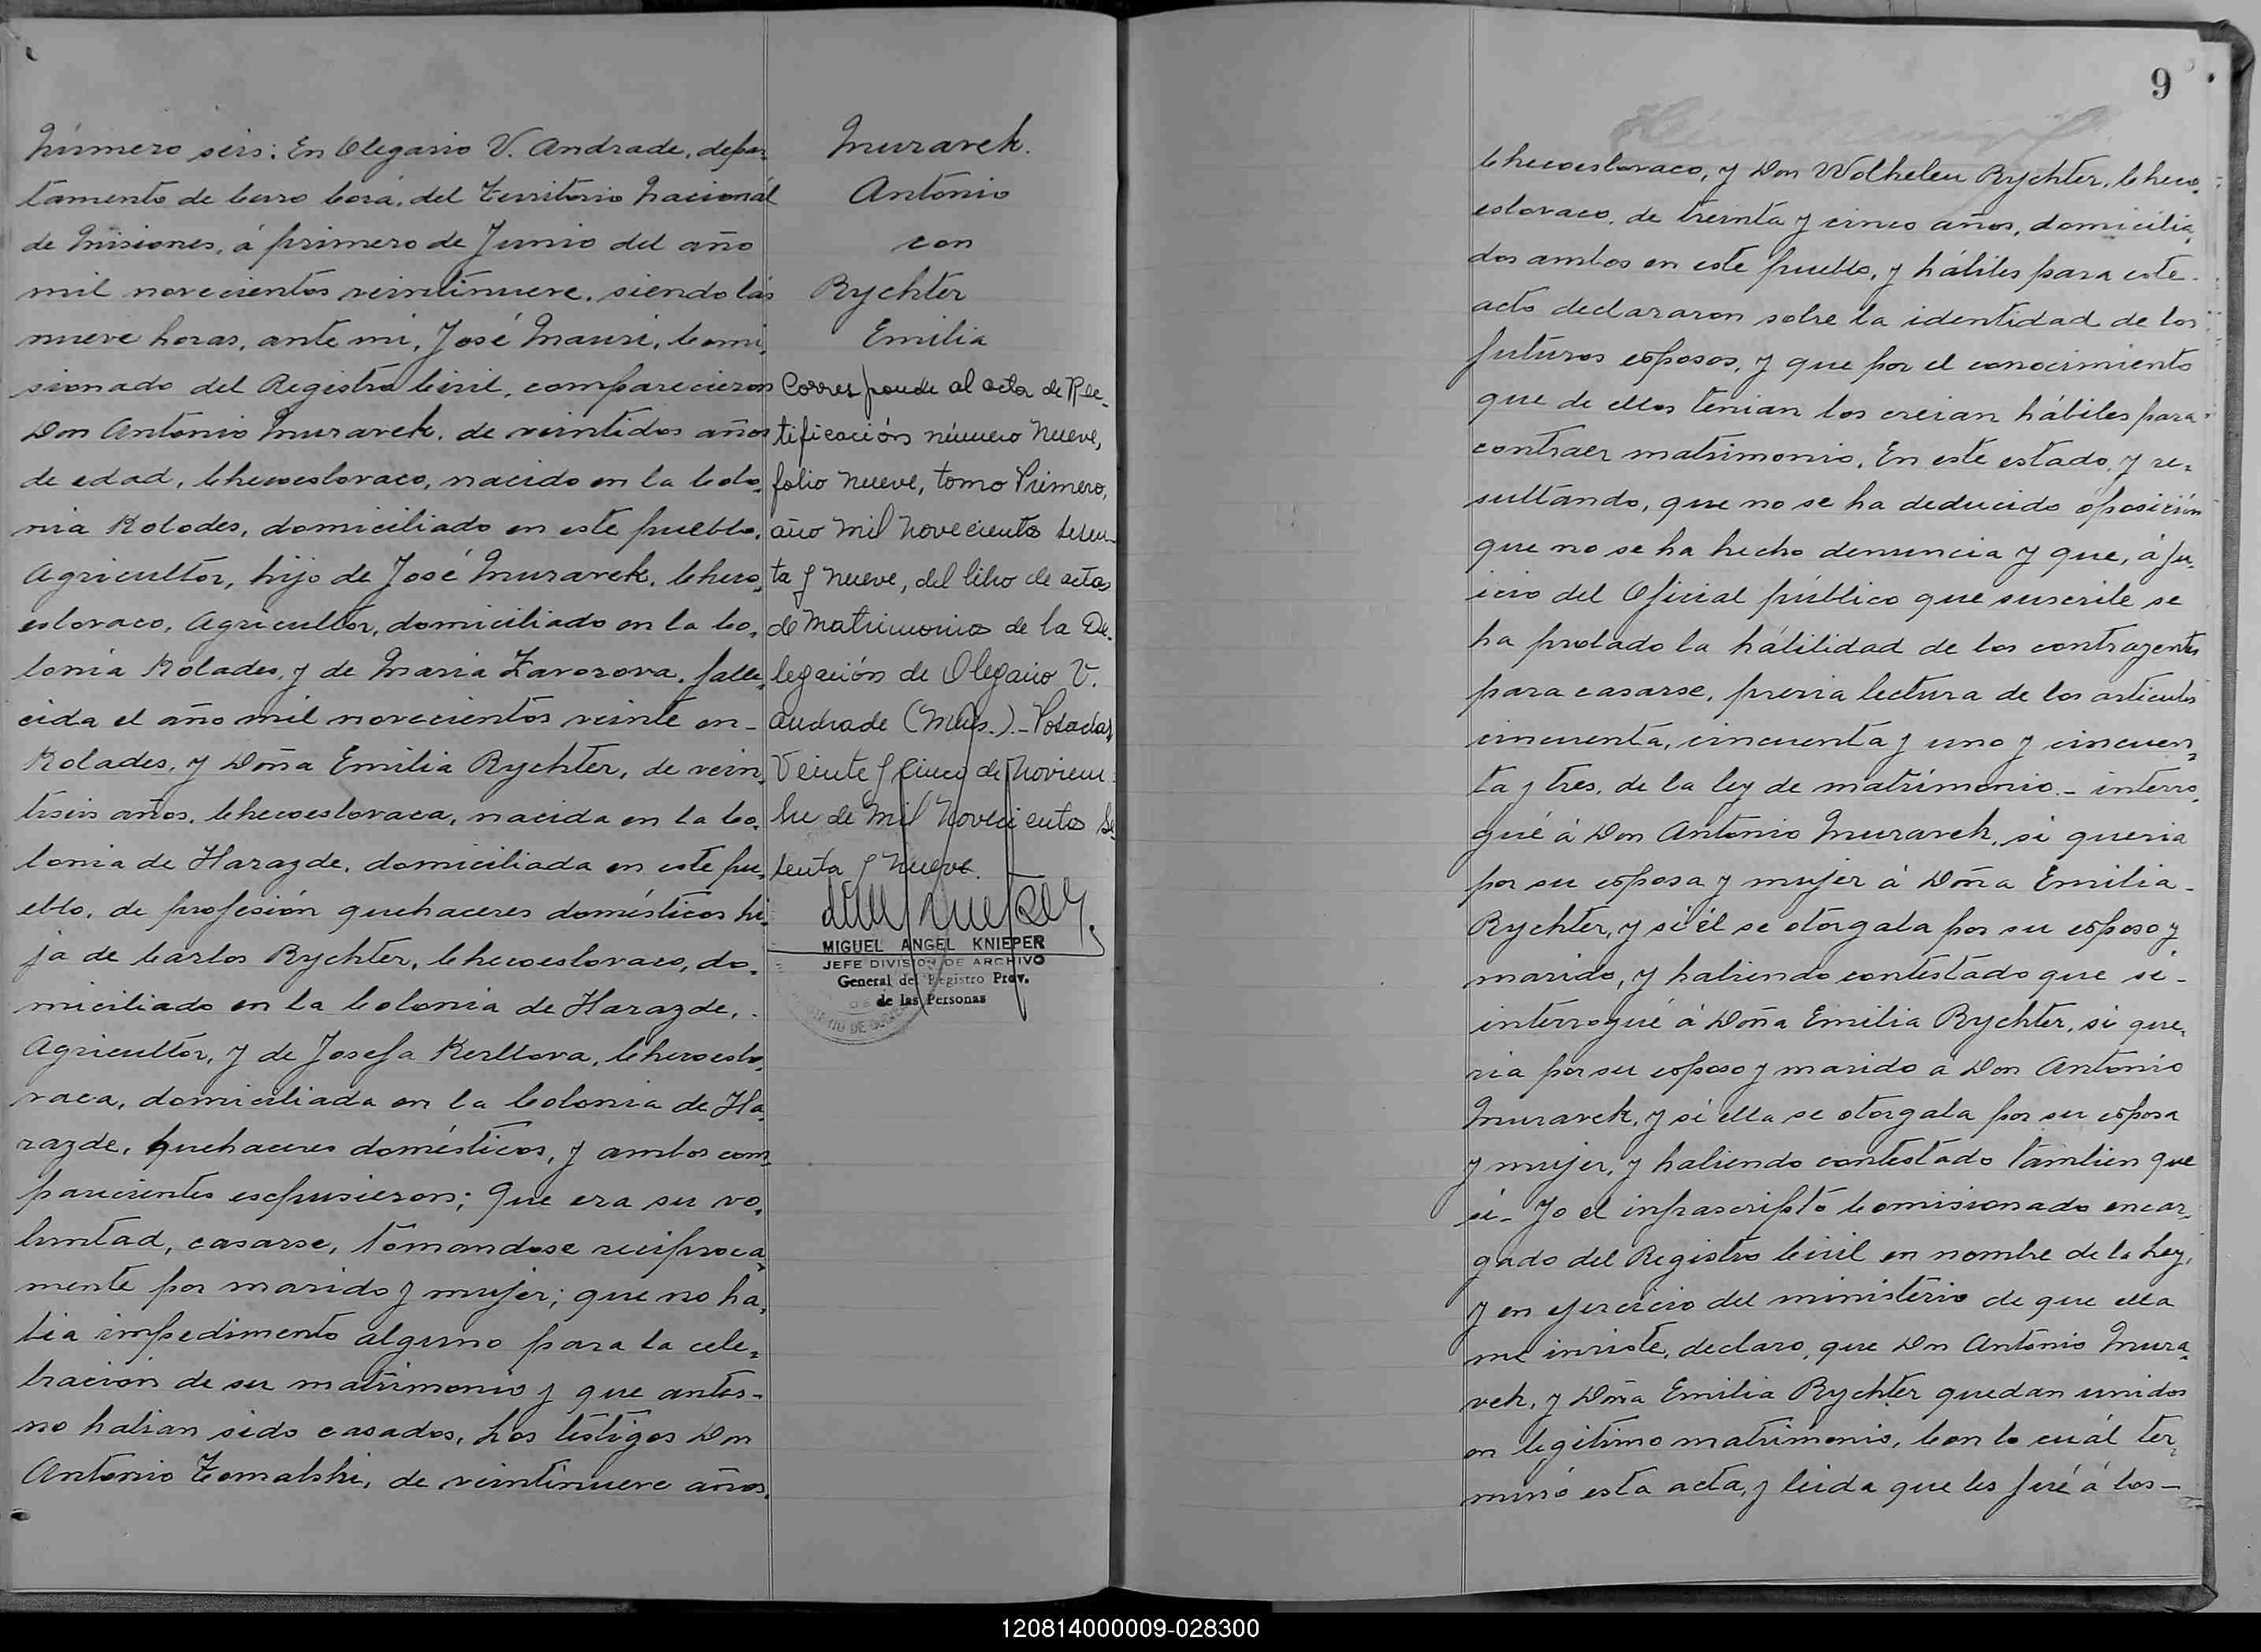 Número seis: En Olegario V. Andrade, depar
tamento de Cerro Corá, del Territorio Nacionál
de Misiones, á primero de Junio del año
mil novecientos veintinueve, siendo lás
nueve horas, ante mi, José Mauri, Comi-
sionado del Registro Civil, comparecieron
Don Antonio Muravek, de veintidos años
de edad, Checoeslovaco, nacido en la Colo-
nia Kolodes, domiciliado en este pueblo,
Agricultor, hijo de José Muravek, Checo-
eslovaco, Agricultor, domiciliado en la Co-
lonia Kolades, y de Maria Zavorova, falle-
cida el año mil novecientos veinte en-
Kolades, y Doña Emilia Rychter, de vein-
tiseis años, Checoeslovaca, nacida en la Co-
lonia de Harazde, domiciliada en este pu-
eblo, de profesión quehaceres domésticos hi-
ja de Carlos Rychter, Checoeslovaco, do-
miciliado en la Colonia de Harazde,
Agricultor, y de Josefa Kerltova, Checoeslo-
vaca, domiciliada en la Colonia de Ha-
razde, quehaceres domésticos, y ambos com-
parecientes escpusieron; Que era su vo-
luntad, casarse, tomandose reciproca-
mente por marido y mujer; que no ha-
bia impedimento alguno para la cele-
bración de su matrimonio y que antes-
no habian sido casados, Los testigos Don
Antonio Tomalski, de veintinueve años,
Muravek.
Antonio
con
Rychter
Emilia
Corresponde al acta de Rec-
tificación número Nueve,
folio Nueve, tomo Primero,
año Mil Novecientos seten-
ta y Nueve, del libro de actas
de Matrimonios de la De-
legación de Olegario V.
Andrade (Mnes.).- Posadas,
Veinte y cinco de Noviem-
bre de Mil Novecientos Se-
tenta y Nueve.
MIGUEL ANGEL KNIEPER
JEFE DIVISION DE ARCHIVO
General del Registro Prov.
de las Personas
9
Checoeslovaco, y Don Wolhelen Rychter, Checo-
eslovaco, de treinta y cinco años, domicilia-
dos ambos en este pueblo, y hábiles para este-
acto declararon sobre la identidad de los
futuros esposos, y que por el conocimiento
que de ellos tenian los creian hábiles para
contraer matrimonio, En este estado, y re-
sultando, que no se ha deducido oposición
que no se ha hecho denuncia y que, á ju-
icio del Oficial público que suscribe se
ha probado la hábilidad de los contrayentes
para casarse, previa lectura de los articulos
cincuenta, cincuenta y uno y cincuen-
ta y tres, de la ley de matrimonio.- interro-
gué á Don Antonio Muravek, si queria
por su esposa y mujer á Doña Emilia-
Rychter, y si él se otorgaba por su esposo y
marido, y habiendo contestado que si-
interrogué á Doña Emilia Rychter, si que-
ria por su esposo y marido á Don Antonio
Muravek, y si ella se otorgaba por su esposa
y mujer, y habiendo contestado tambien que
si- Yo el infrascripto Comisionado encar-
gado del Registro Civil en nombre de la Ley,
y en ejercicio del ministerio de que ella
me inviste, declaro, que Don Antonio Mura-
vek, y Doña Emilia Rychter quedan unidos
en legitimo matrimonio, Con lo cuál ter-
minó esta acta, y leida que les fué á los-
120814000009-028300